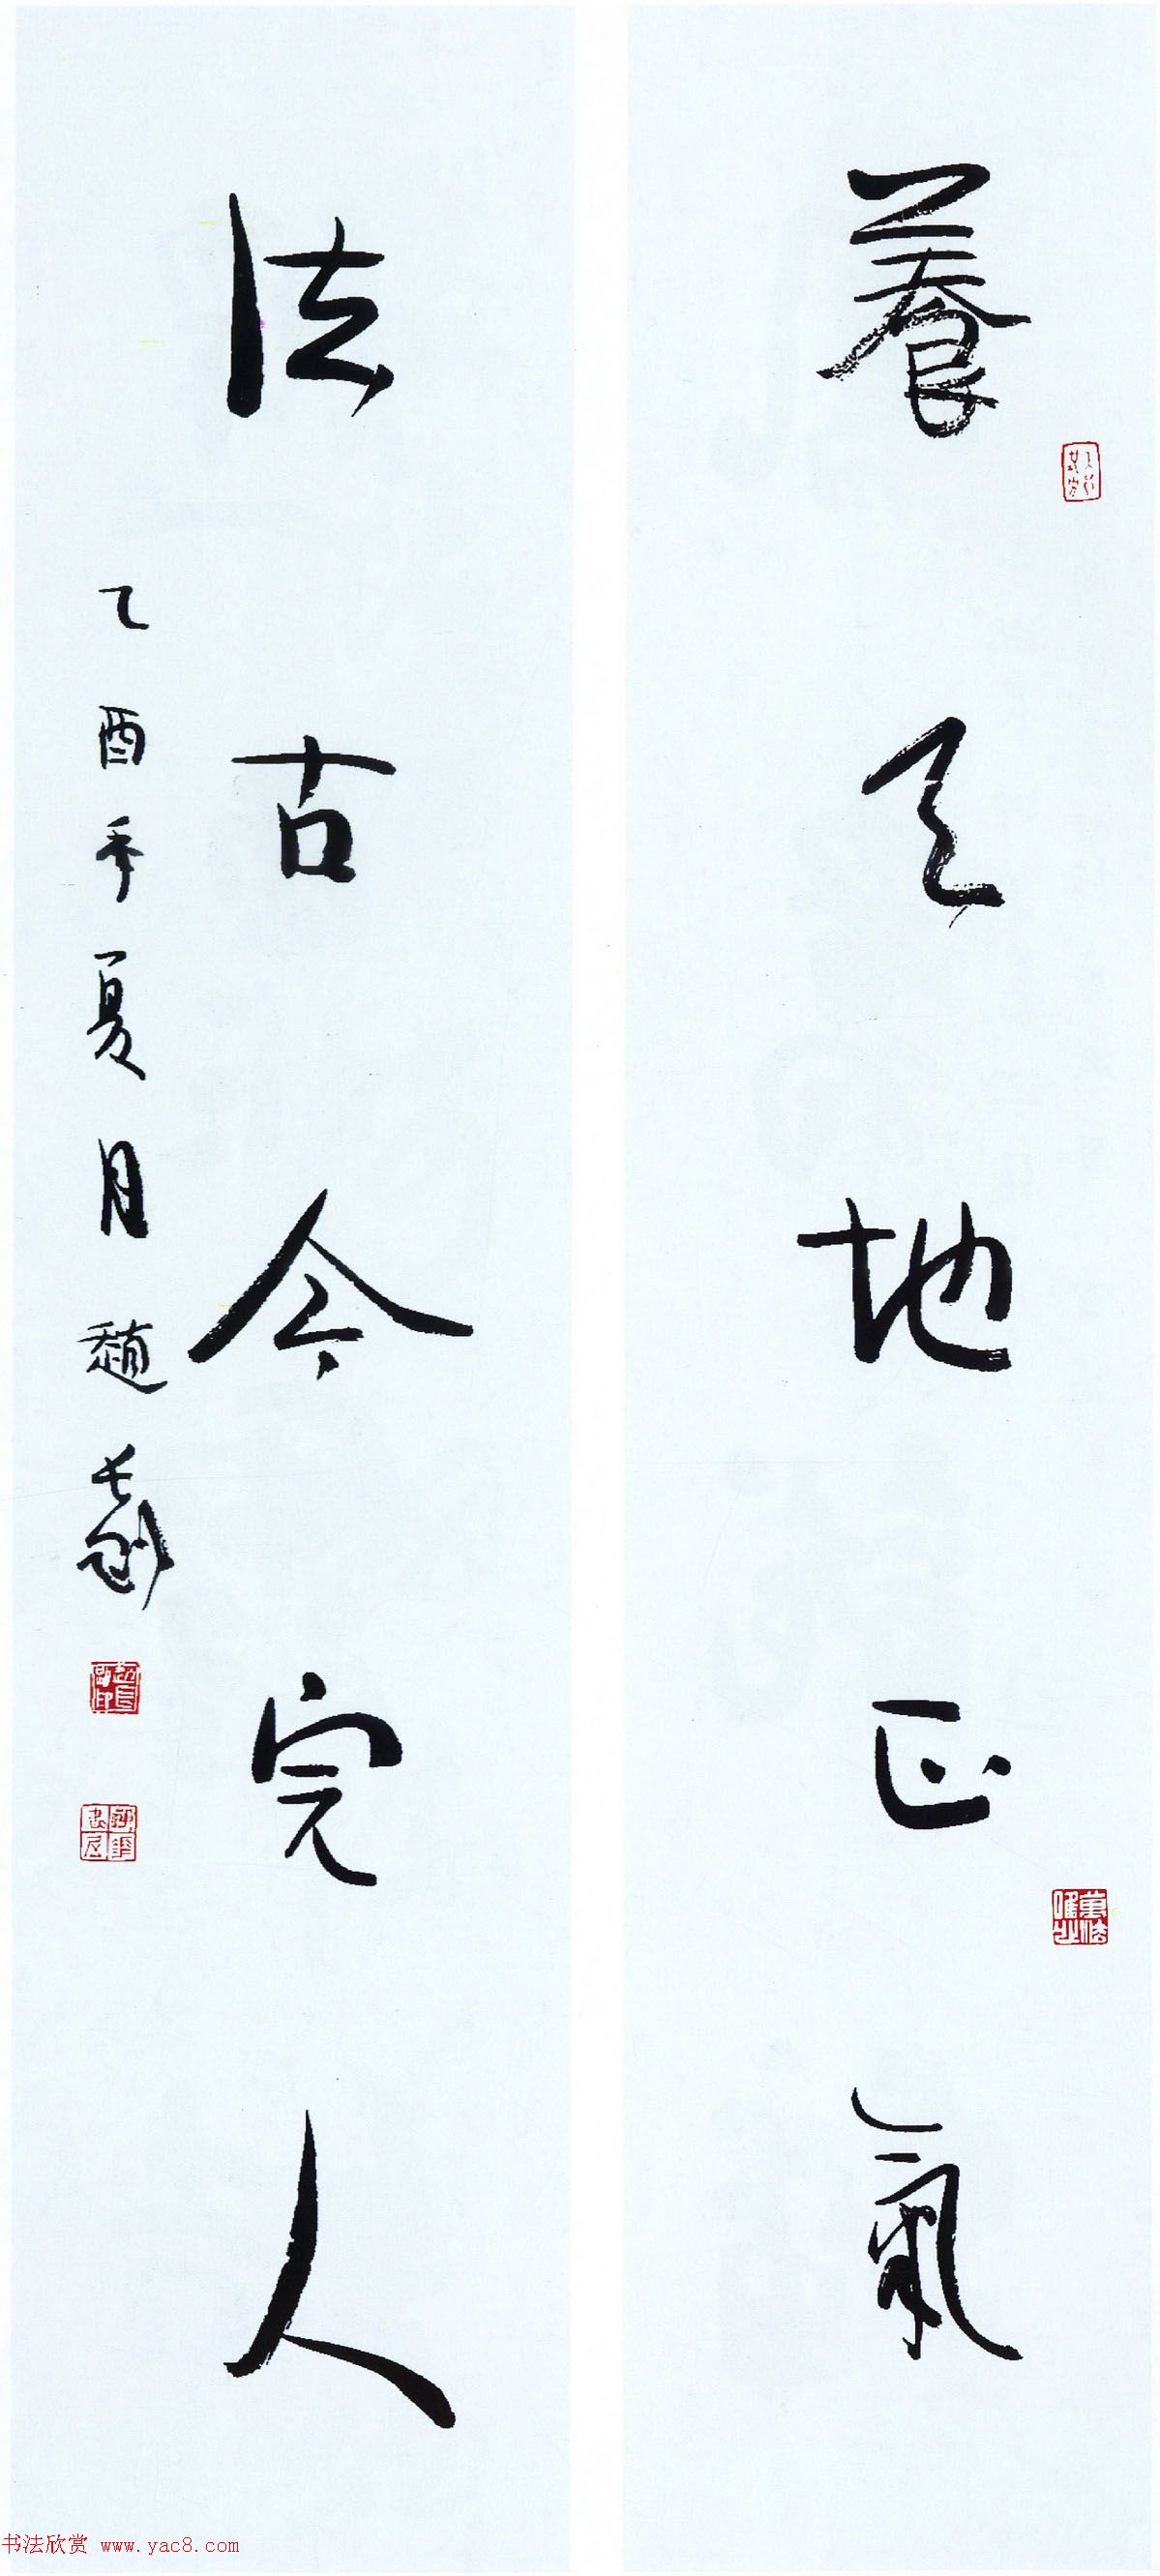 養天地正氣
法古今完人
乙酉年夏月趙長剛
萬法唯心
书法欣赏 www.yac8.com